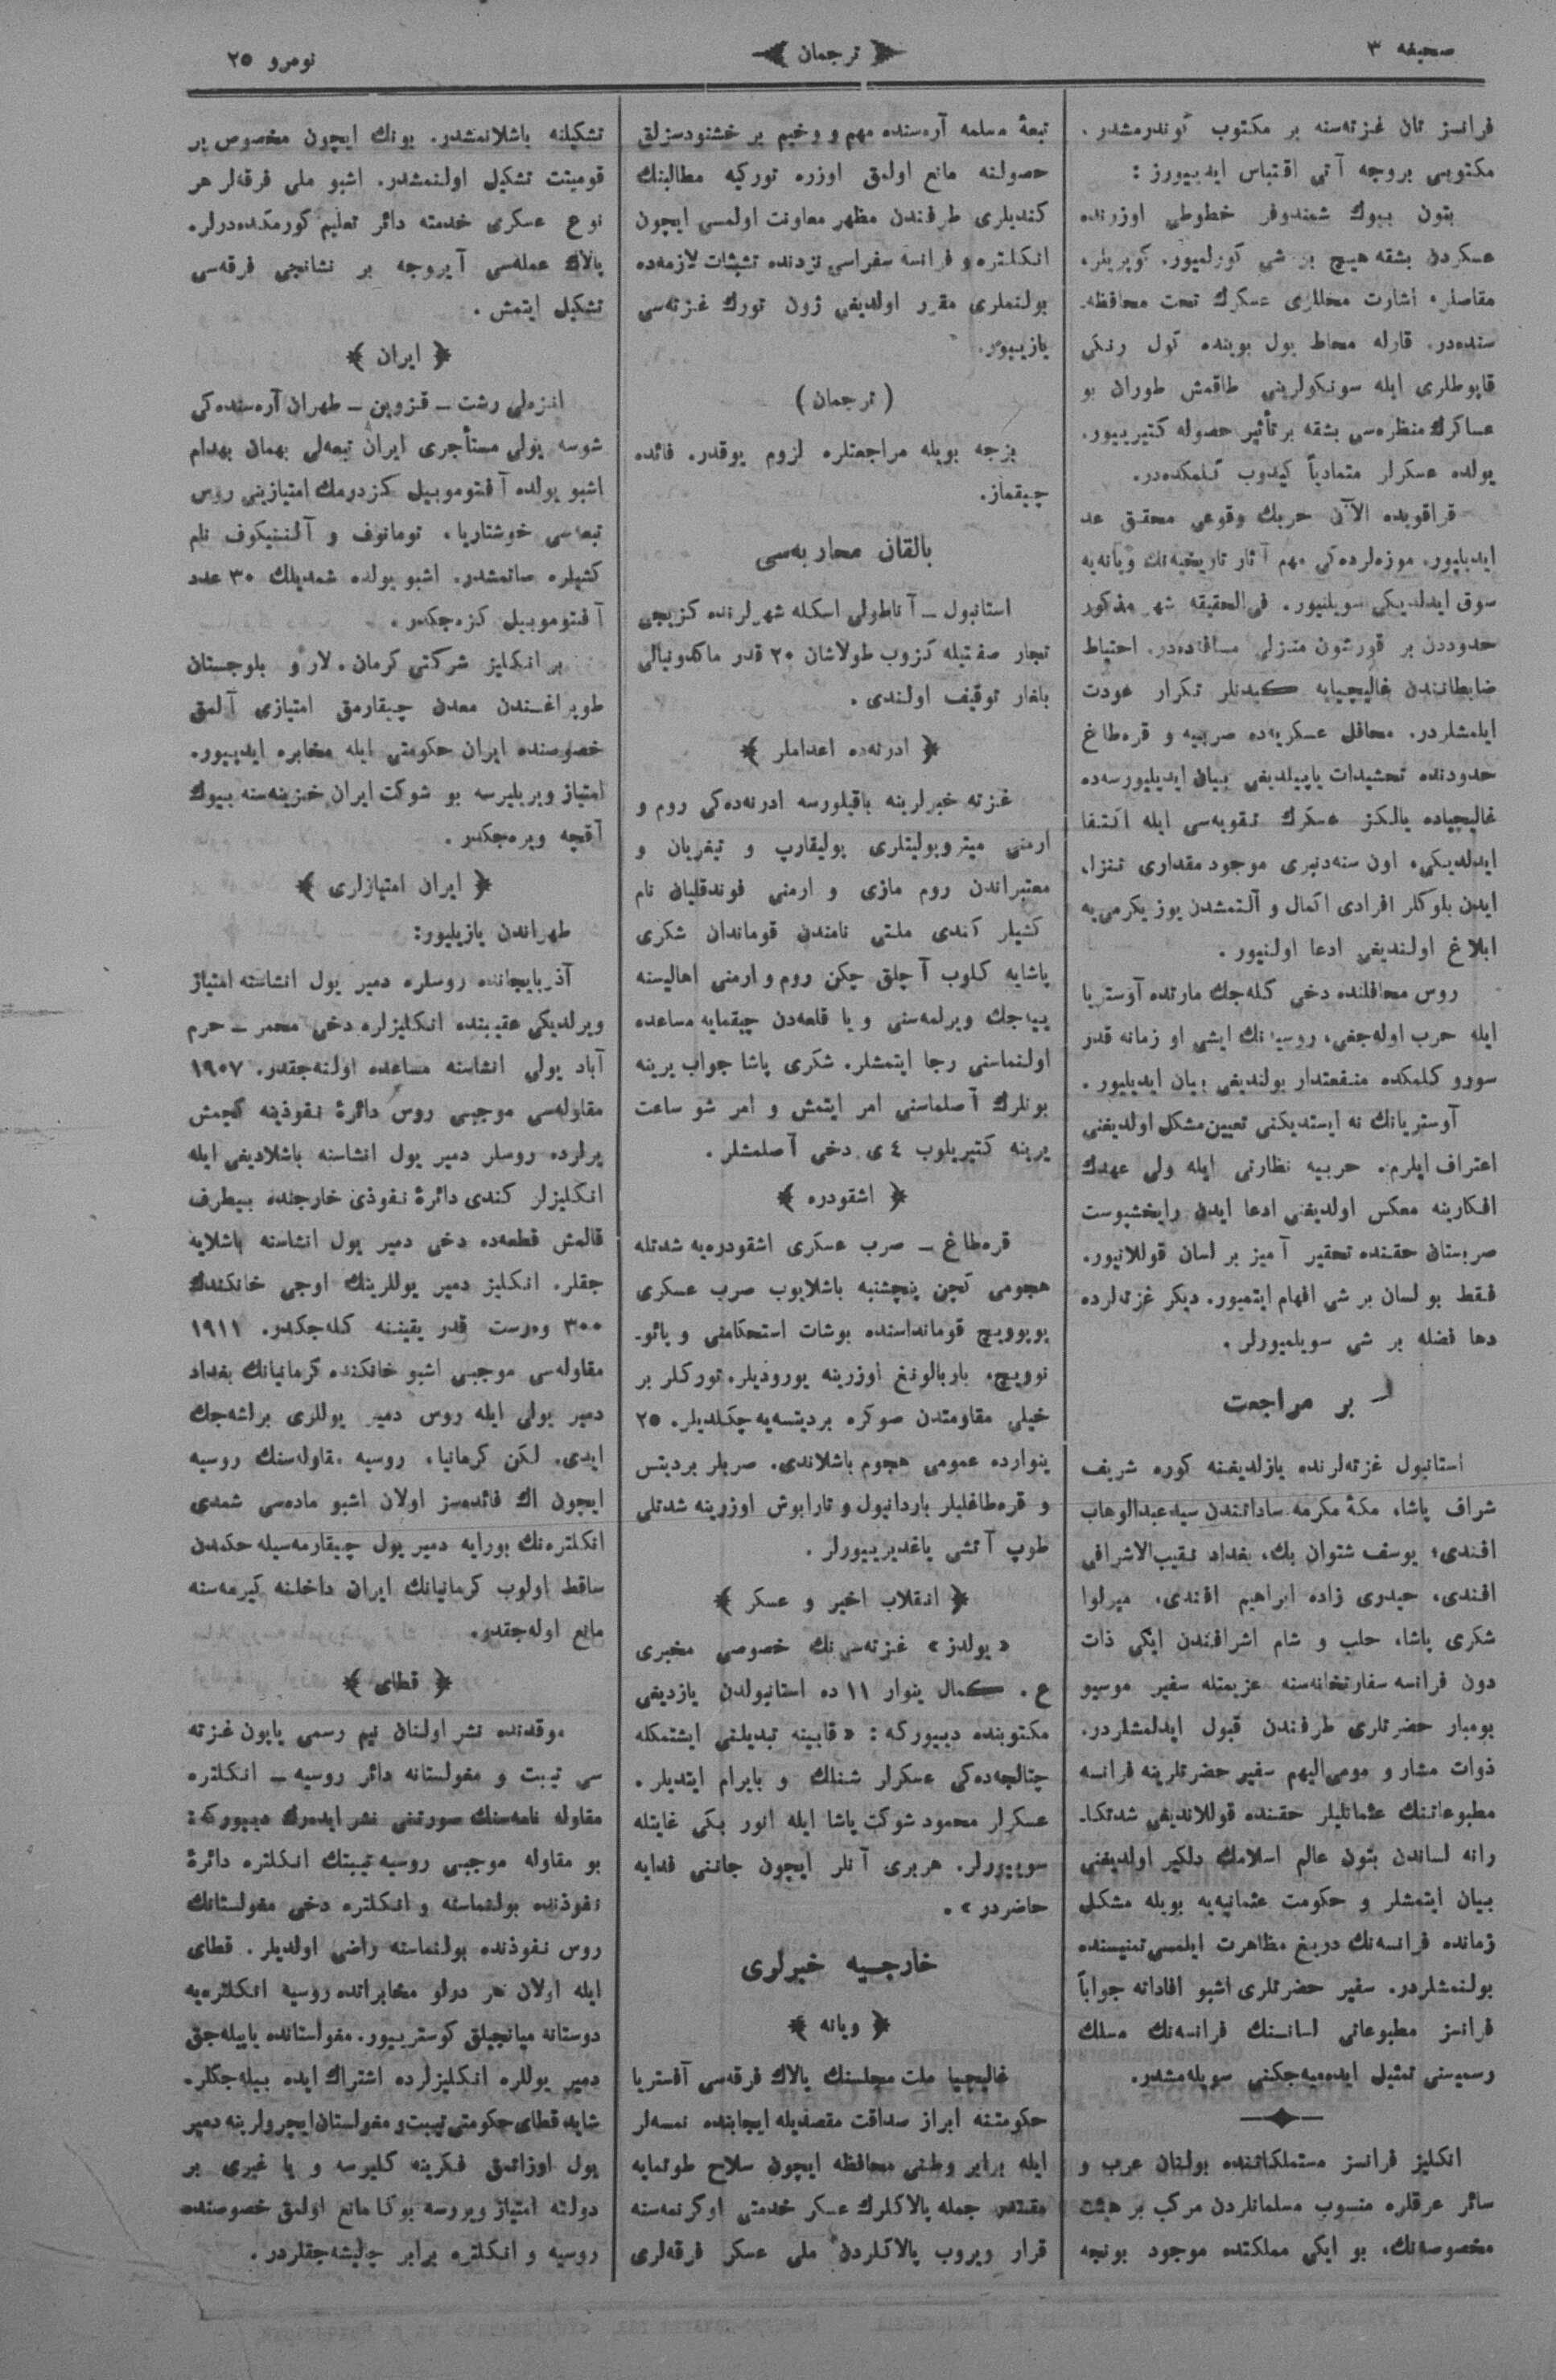 صحیفه ٣
ترجمان
نومرو ٢٥
فرانسز تان غزته‌سنه بر مکتوب گوندرمشدر.
مکتوبی بروجه آتی اقتباس ایدییورز:
بتون بیوك شمندوفر خطوطی اوزرنده
عسکردن بشقه هیچ بر شی کورلمیور. کوپریلر،
مقاصلر، اشارت محللری عسکرك تحت محافظه‌-
سنده‌در. قارله محاط یول بوینده کول رنکی
قاپوطلری ایله سونکولرینی طاقمش طوران بو
عساکرك منظره‌سی بشقه بر تأثیر حصوله کتیرییور.
یولده عسکرلر متمادیاً کیدوب کلمکده‌در.
قراقویده الآن حربك وقوعی محقق عد
ایدیلیور. موزه‌لرده‌کی مهم آثار تاریخیه‌نك ویانه‌یه
سوق ایدلدیکی سویلنیور. فی‌الحقیقه شهر مذکور
حدوددن بر قورشون منزلی مسافه‌ده‌در. احتیاط
ضابطانندن غالیچیایه کیدنلر تکرار عودت
ایلمشلردر. محافل عسکریه‌ده صربیه و قره‌طاغ
حدودنده تحشیدات یاپیلدیغی بیان ایدیلیورسه‌ده
غالیچیاده یالکز عسکرك تقویه‌سی ایله اکتفا
ایدلدیکی، اون سنه‌دنبری موجود مقداری تنزل
ایدن بلوکلر افرادی اکمال و آلتمشدن یوز یکرمی‌یه
ابلاغ اولندیغی ادعا اولنیور.
روس محافلنده دخی کله‌جك مارتده آوستریا
ایله حرب اوله‌جغی، روسیه‌نك ایشی او زمانه قدر
سورو کلمکده منفعتدار بولندیغی بیان ایدیلیور.
آوستریانك نه ایستدیکنی تعیین مشکل اولدیغنی
اعتراف ایلرم. حربیه نظارتی ایله ولی عهدك
افکارینه معکس اولدیغنی ادعا ایدن رایخشپوست
صربستان حقنده تحقیر آمیز بر لسان قوللانیور.
فقط بو لسان بر شی افهام ایتمیور. دیکر غزته‌لرده
دها فضله بر شی سویلمیورلر.
بر مراجعت
استانبول غزته‌لرنده یازلدیغنه کوره شریف
شراف پاشا، مکهٔ مکرمه ساداتندن سید عبدالوهاب
افندی، یوسف شتوان بك، بغداد نقیب‌الاشرافی
افندی، حیدری زاده ابراهیم افندی، میرلوا
شکری پاشا، حلب و شام اشرافندن ایکی ذات
دون فرانسه سفارتخانه‌سنه عزیمتله سفیر موسیو
بومبار حضرتلری طرفندن قبول ایدلمشلردر.
ذوات مشار و مومی‌الیهم سفیر حضرتلرینه فرانسه
مطبوعاتنك عثمانلیلر حقنده قوللاندیغی شدتکا-
رانه لساندن بتون عالم اسلامك دلکیر اولدیغنی
بیان ایتمشلر و حکومت عثمانیه‌یه بویله مشکل
زمانده فرانسه‌نك دریغ مظاهرت ایلمسی تمنیسنده
بولنمشلردر. سفیر حضرتلری اشبو افاداته جواباً
فرانسز مطبوعاتی لسانسنك فرانسه‌نك مسلك
رسمیسنی تمثیل ایده‌میه‌جکنی سویله‌مشدر.
انکلیز فرانسز مستملکاتنده بولنان عرب و
سائر عرقلره منسوب مسلمانلردن مرکب بر هیئت
مخصوصه‌نك، بو ایکی مملکتده موجود بونجه
تبعهٔ مسلمه آره‌سنده مهم و وخیم بر خشنودسزلق
حصولنه مانع اولمق اوزره تورکیه مطالبنك
کندیلری طرفندن مظهر معاونت اولمسی ایچون
انکلتره و فرانسه سفراسی نزدنده تشبثات لازمه‌ده
بولنملری مقرر اولدیغی ژون تورك غزته‌سی
یازییور.
(ترجمان)
بزجه بویله مراجعتلره لزوم یوقدر. فائده
چیقماز.
بالقان محاربه‌سی
استانبول ــ آناطولی اسکله شهرلرنده کزیجی
تجار صفتیله کزوب طولاشان ٢٠ قدر ماکدونیالی
بلغار توقیف اولندی.
ادرنه‌ده اعداملر
غزته خبرلرینه باقیلورسه ادرنه‌ده‌کی روم و
ارمنی میتروپولیتلری پولیقارپ و تیغریان و
معتبراندن روم مازی و ارمنی فوندقلیان نام
کشیلر کندی ملتی نامندن قوماندان شکری
پاشایه کلوب آچلق چکن روم و ارمنی اهالیسنه
ییه‌جك ویرلمه‌سنی و یا قلعه‌دن چیقمایه مساعده
اولنماسنی رجا ایتمشلر. شکری پاشا جواب یرینه
بونلرك آصلماسنی امر ایتمش و امر شو ساعت
یرینه کتیریلوب ٤ ی دخی آصلمشلر.
اشقودره
قره‌طاغ ــ صرب عسکری اشقودره‌یه شدتله
هجومی کچن پنچشنبه باشلایوب صرب عسکری
پوپوویچ قومانداسنده بوشات استحکامنی و یانو-
نوویچ، باربالونغ اوزرینه یورودیلر. تورکلر بر
خیلی مقاومتدن صوکره بردیتسه‌یه چکلدیلر. ٢٥
ینوارده عمومی هجوم باشلاندی. صربلر بردیتس
و قره‌طاغلیلر باردانیول و تارابوش اوزرینه شدتلی
طوپ آتشی یاغدیرییورلر.
انقلاب اخیر و عسکر
«یولدز» غزته‌سی‌نك خصوصی مخبری
ع. کمال ینوار ١١ ده استانبولدن یازدیغی
مکتوبنده دییورکه: «قابینه تبدیلنی ایشتمکله
چتالجه‌ده‌کی عسکرلر شنلك و بایرام ایتدیلر.
عسکرلر محمود شوکت پاشا ایله انور بکی غایتله
سوییورلر. هربری آنلر ایچون جاننی فدایه
حاضردر».
خارجیه خبرلری
ویانه
غالیچیا ملت مجلسنك پالاك فرقه‌سی آفستریا
حکومتنه ابراز صداقت مقصدیله ایجابنده نمسه‌لر
ایله برابر وطنی محافظه ایچون سلاح طوتمایه
مقتدر جمله پالاکلرك عسکر خدمتی اوکرنمه‌سنه
قرار ویروب پالاکلردن ملی عسکر فرقه‌لری
تشکیلنه باشلانمشدر. بونك ایچون مخصوص بر
قومیتت تشکیل اولنمشدر. اشبو ملی فرقه‌لر هر
نوع عسکری خدمته دائر تعلیم کورمکده‌درلر.
پالاك عمله‌سی آیروجه بر نشانجی فرقه‌سی
تشکیل ایتمش.
ایران
انزه‌لی رشت ــ قزوین ــ طهران آره‌سنده‌کی
شوسه یولی مستأجری ایران تبعه‌لی بهمان بهدام
اشبو یولده آفتوموبیل کزدرمك امتیازینی روس
تبعه‌سی خوشتاریا، تومانوف و آلننیکوف نام
کشیلره صاتمشدر. اشبو یولده شمدیلك ٣٠ عدد
آفتوموبیل کزه‌جکدر.
بر انکلیز شرکتی کرمان، لار و بلوجستان
طوپراغندن معدن چیقارمق امتیازی آلمق
خصوصنده ایران حکومتی ایله مخابره ایدییور.
امتیاز ویریلیرسه بو شوکت ایران خزینه‌سنه بیوك
آقچه ویره‌جکدر.
ایران امتیازلری
طهراندن یازیلیور:
آذربایجانده روسلره دمیر یول انشاسنه امتیاز
ویرلدیکی عقیبنده انکلیزلره دخی محمر ــ حرم
آباد یولی انشاسنه مساعده اولنه‌جقدر. ١٩٠٧
مقاوله‌سی موجبی روس دائرهٔ نفوذینه کچمش
یرلرده روسلر دمیر یول انشاسنه باشلادیغی ایله
انکلیزلر کندی دائرهٔ نفوذی خارجنده بیطرف
قالمش قطعه‌ده دخی دمیر یول انشاسنه باشلایه
جقلر. انکلیز دمیر یوللرینك اوجی خانکندك
٣٠٠ ورست قدر یقیننه کله‌جکدر. ١٩١١
مقاوله‌سی موجبی اشبو خانکنده کرمانیانك بغداد
دمیر یولی ایله روس دمیر یوللری براشه‌جك
ایدی. لکن کرمانیا، روسیه مقاوله‌سنك روسیه
ایچون اك فائده‌سز اولان اشبو ماده‌سی شمدی
انکلتره‌نك بورایه دمیر یول چیقارمه‌سیله حکمدن
ساقط اولوب کرمانیانك ایران داخلنه کیرمه‌سنه
مانع اوله‌جقدر.
قطای
موقدنده نشر اولنان نیم رسمی یاپون غزته
سی تیبت و مغولستانه دائر روسیه ــ انکلتره
مقاوله نامه‌سنك سورتنی نشر ایده‌رك دییورکه:
بو مقاوله موجبی روسیه تیبتك انکلتره دائرهٔ
نفوذنده بولنماسنه و انکلتره دخی مغولستانك
روس نفوذنده بولنماسنه راضی اولدیلر. قطای
ایله اولان هر دولو مخابراتده روسیه انکلتره‌یه
دوستانه میانجیلق کوسترییور. مغولستانده یاپیله‌جق
دمیر یوللره انکلیزلرده اشتراك ایده بیله‌جکلر.
شاید قطای حکومتی تیبت و مغولستان ایچرولرینه دمیر
یول اوزاتمق فکرینه کلیرسه و یا غیری بر
دولته امتیاز ویررسه بوکا مانع اولمق خصوصنده
روسیه و انکلتره برابر چالیشه‌جقلردر.